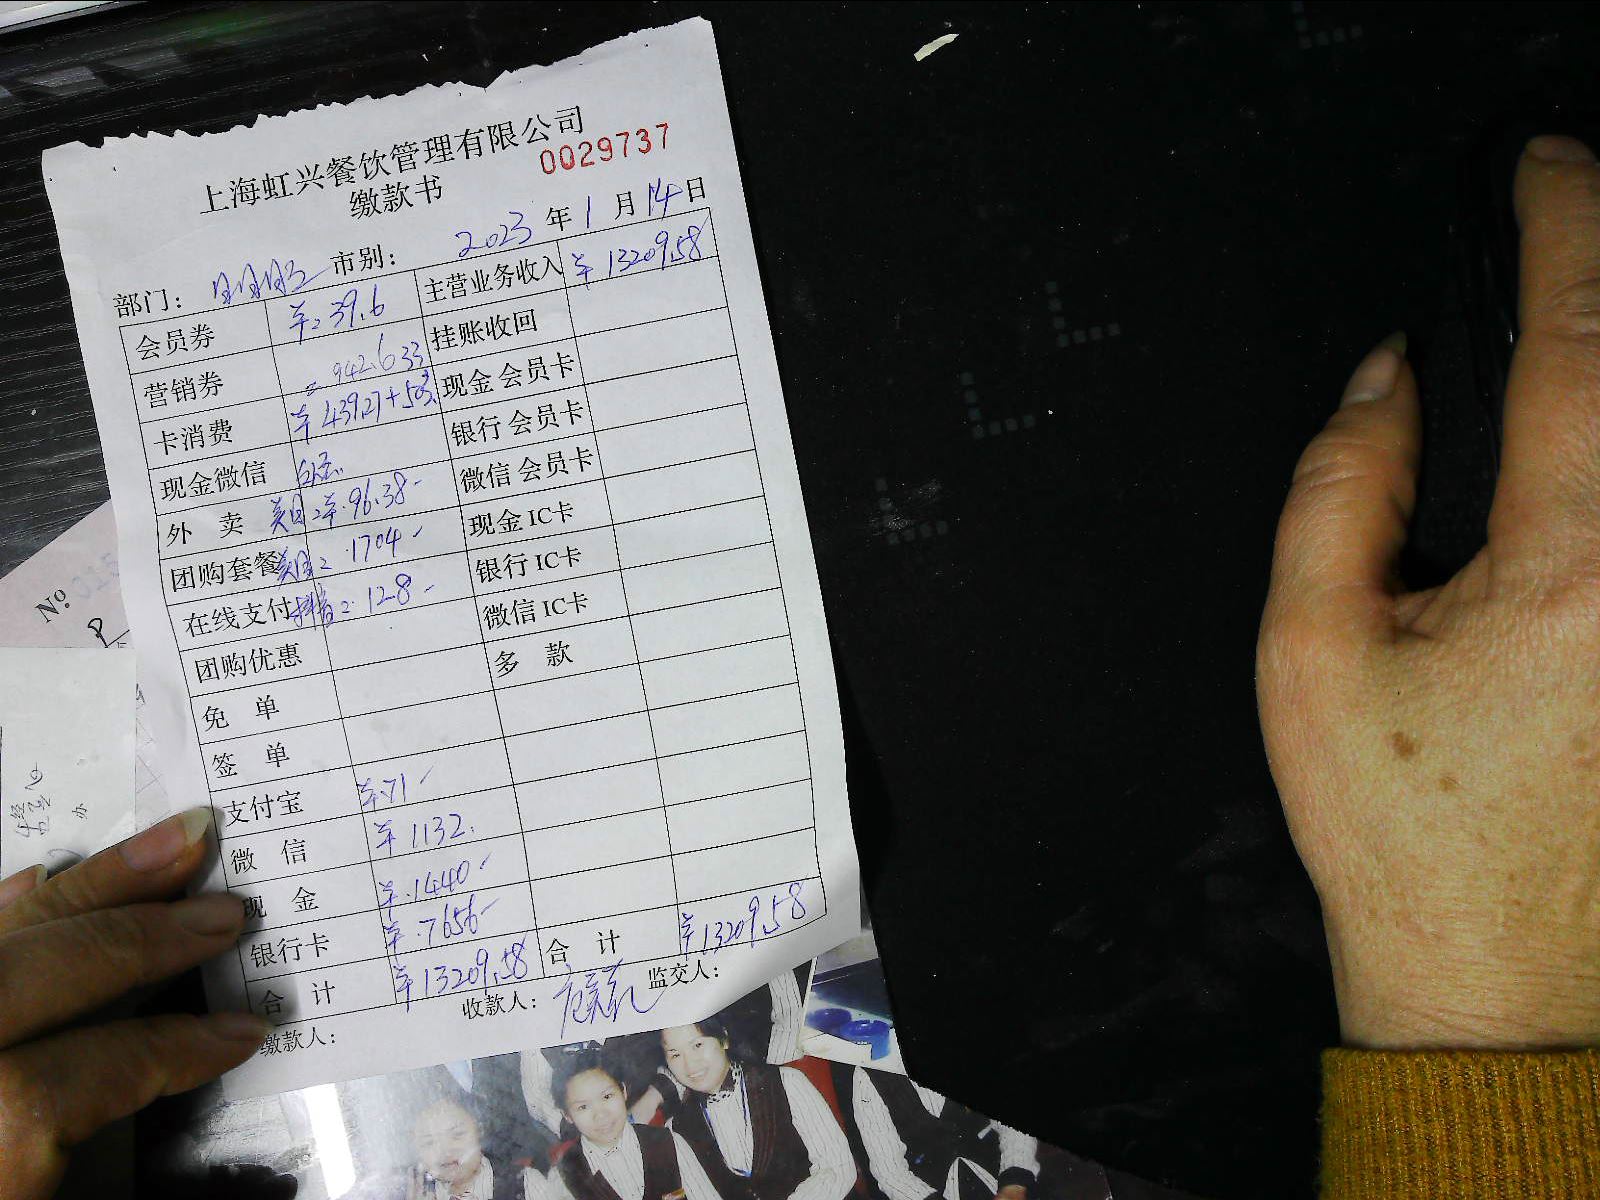 上海虹兴餐饮管理有限公司
0029737
缴款书
部门： 市别： 2023 年 1 月 14 日
会员券 ¥: 39.6 主营业务收入 ¥ 13209.58
营销券 = 942.633 挂账收回
卡消费 现金 会员卡
现金微信 银行 会员卡
外 卖 美团: ¥.96.38- 微信 会员卡
团购套餐 美团: .1704- 现金 IC卡
在线支付 抖音: 128- 银行 IC卡
团购优惠 微信 IC卡
免 单 多 款
签 单
支付宝 ¥.71-
微 信 ¥ 1132.
现 金 ¥.1440-
银行卡 ¥.7656-
合 计 ¥13209.58 合 计 ¥13209.58
缴款人： 收款人： 监交人：
№
办